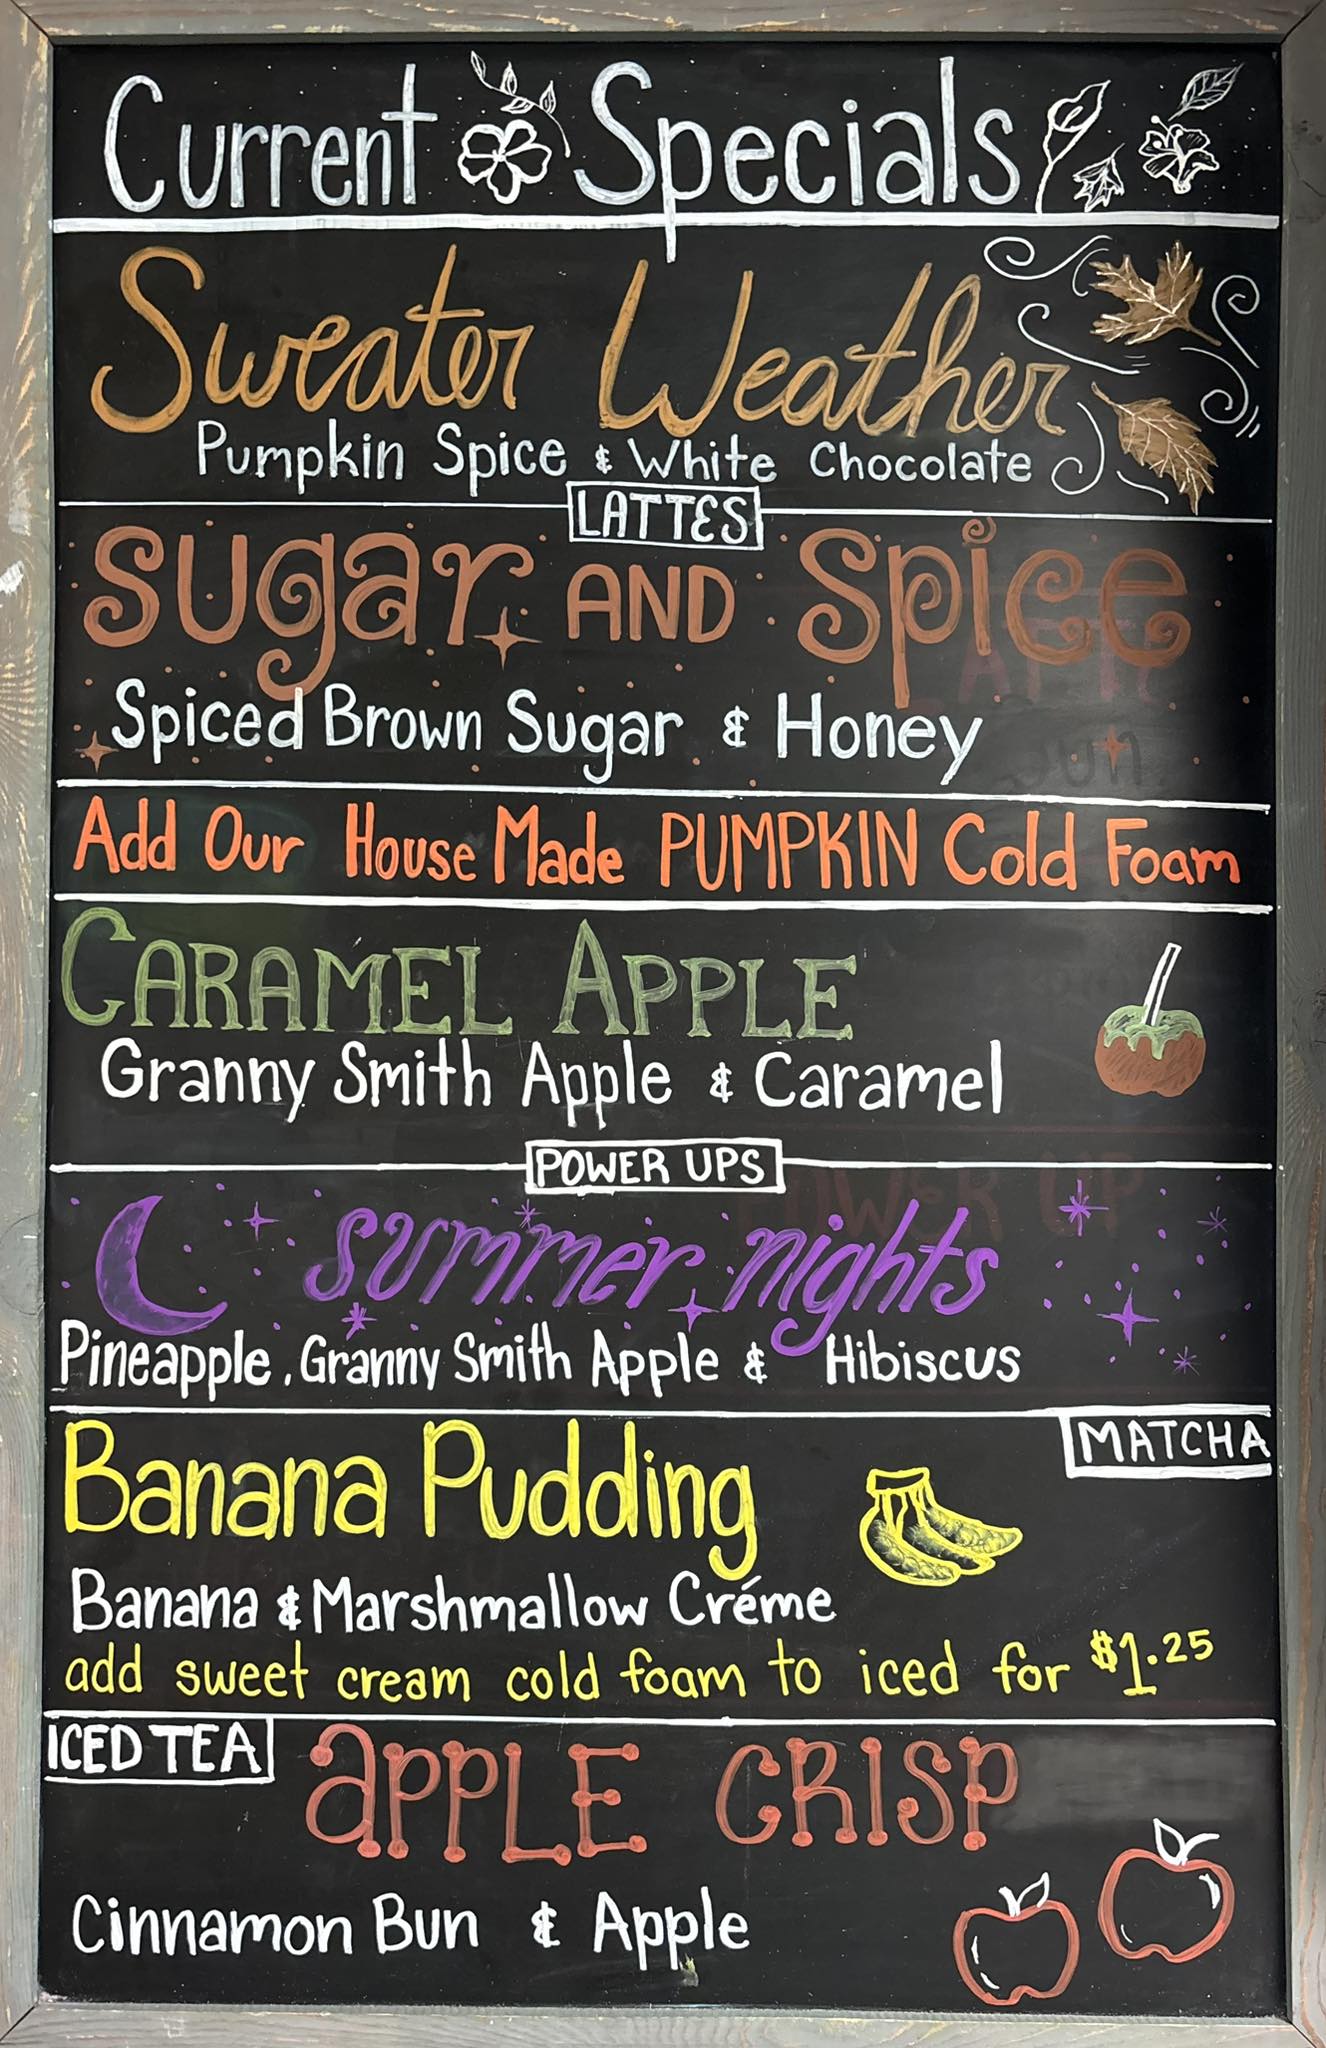 Current Specials
Sweater Weather
Pumpkin Spice & White Chocolate
LATTES
Sugar AND Spice
Spiced Brown Sugar & Honey
Add Our House Made PUMPKIN Cold Foam
CARAMEL APPLE
Granny Smith Apple & Caramel
POWER UPS
summer nights
Pineapple, Granny Smith Apple & Hibiscus
MATCHA
Banana Pudding
Banana & Marshmallow Créme
add sweet cream cold foam to iced for $1.25
ICED TEA
APPLE CRISP
Cinnamon Bun & Apple